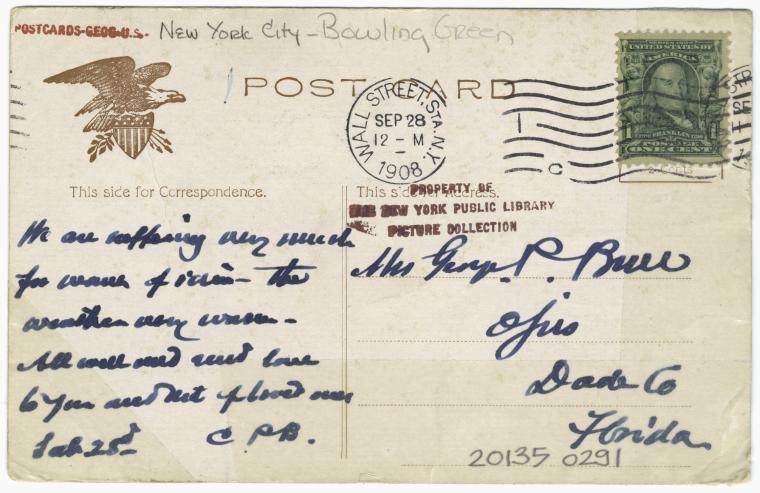 POSTCARDS-GEOG-U.S.- New York City - Bowling Green
POST CARD
WALL STREET, STA. N.Y.
SEP 28
12 - M
1908
1
C
UNITED STATES OF
AMERICA
FRANKLIN
POSTAGE
ONE CENT
This side for Correspondence.
This side for Address.
PROPERTY OF
THE NEW YORK PUBLIC LIBRARY
PICTURE COLLECTION
We are suffering very much
for want of rain - the
weather very warm -
All well and send love
to you and loved ones
C P B.
Mrs George P. Bull
Ojus
Dade Co
Florida
20135 0291